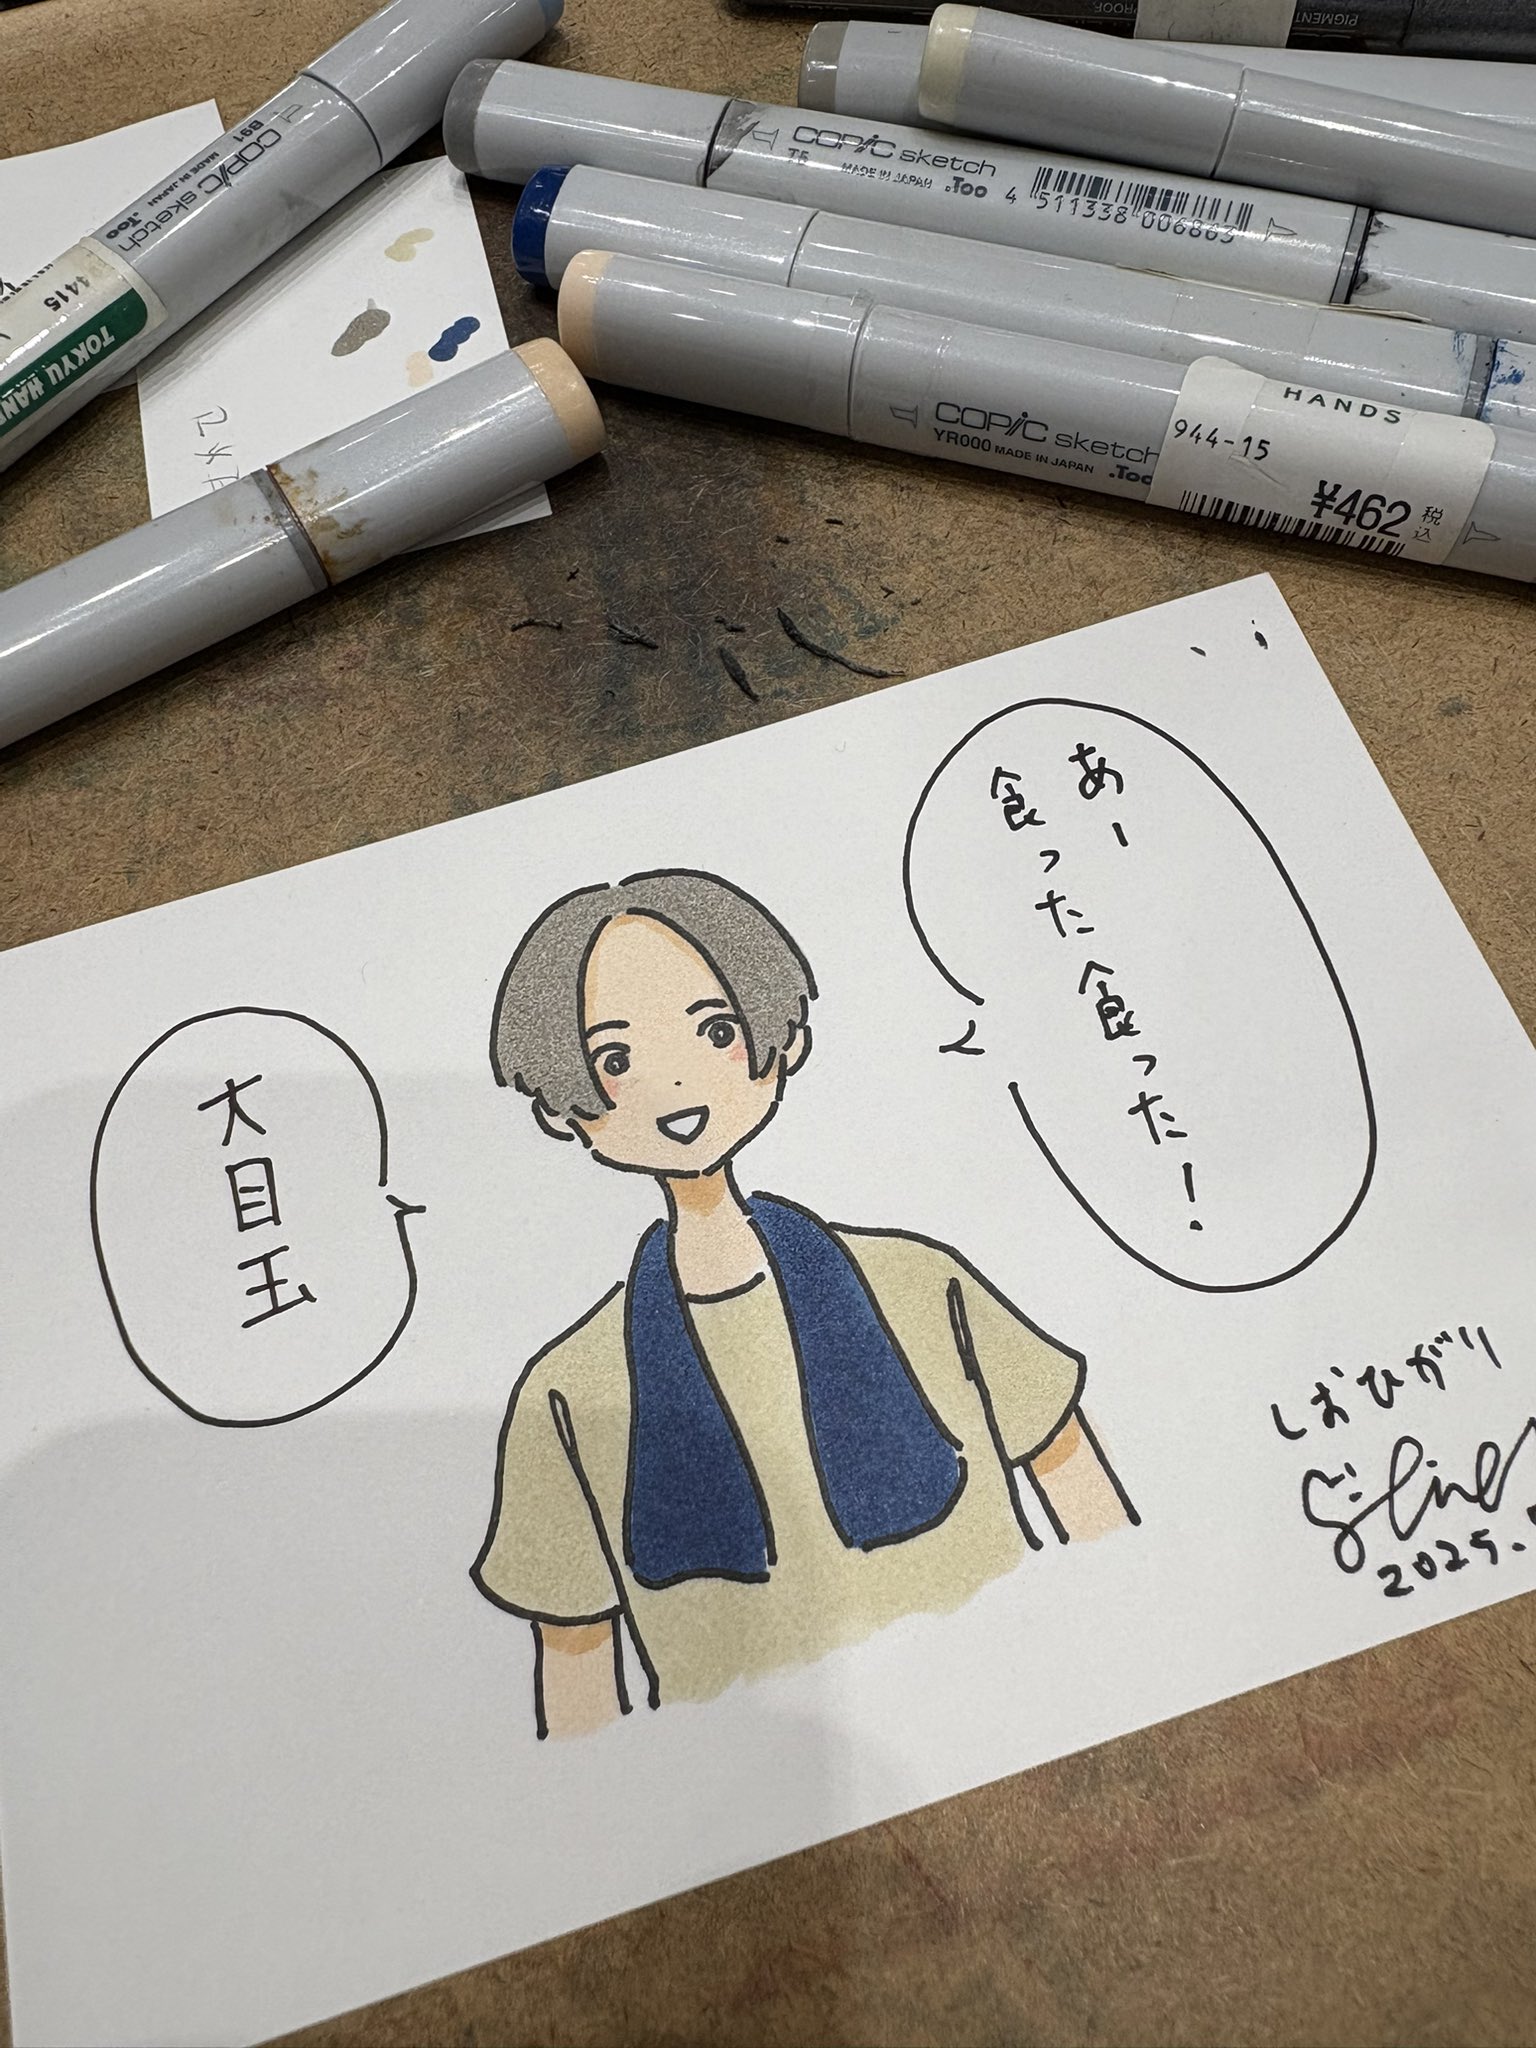 PIGMENT
PROOF
COPiC sketch
B91
MADE IN JAPAN
.Too
4415
TOKYU HAN
COPiC sketch
T5
MADE IN JAPAN
.Too
4 511338 006863
COPiC sketch
YR000 MADE IN JAPAN
.Too
HANDS
944-15
¥462
税込
あー
食った食った!
大目玉
しおひガリ
2025.